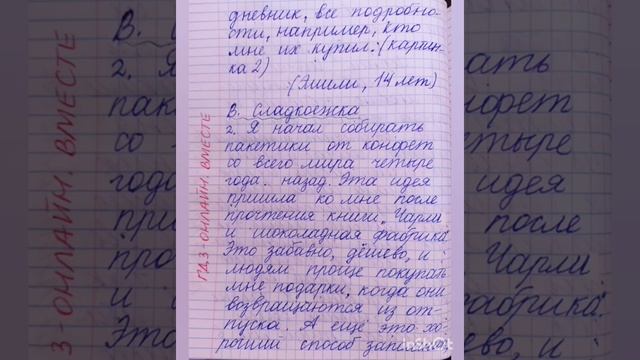 дневник, все подробно-
сти, например, кто
мне их купил. (картин-
ка 2)
(Эшли, 14 лет)
В. Сладкоежка
2. Я начал собирать
пакетики от конфет
со всего мира четыре
года назад. Эта идея
пришла ко мне после
прочтения книги „Чарли
и шоколадная фабрика".
Это забавно, дёшево, и
людям проще покупать
мне подарки, когда они
возвращаются из от-
пуска. А ещё это хо-
роший способ
ГДЗ-ОНЛАЙН. ВМЕСТЕ